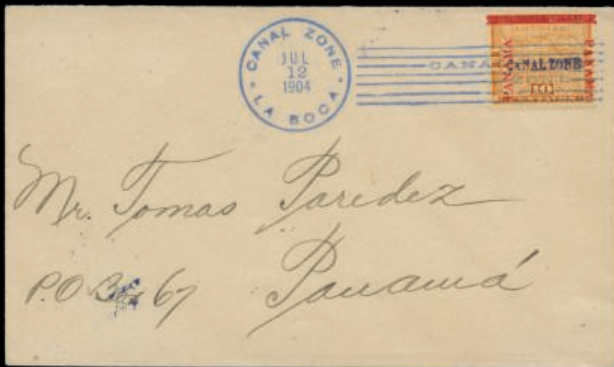 CANAL ZONE
JUL
12
1904
LA BOCA
CANA
PANAMA
CANAL ZONE
PANAMA
Mr. Tomas Paredez
P.O Box 67 Panamá